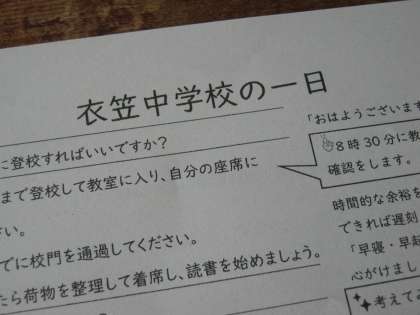 衣笠中学校の一日
に登校すればいいですか?
まで登校して教室に入り、自分の座席に
さい。
でに校門を通過してください。
たら荷物を整理して着席し、読書を始めましょう。
「おはようございます
8時30分に教
確認をします。
時間的な余裕を
できれば遅刻
「早寝・早起
心がけまし
考えてみ